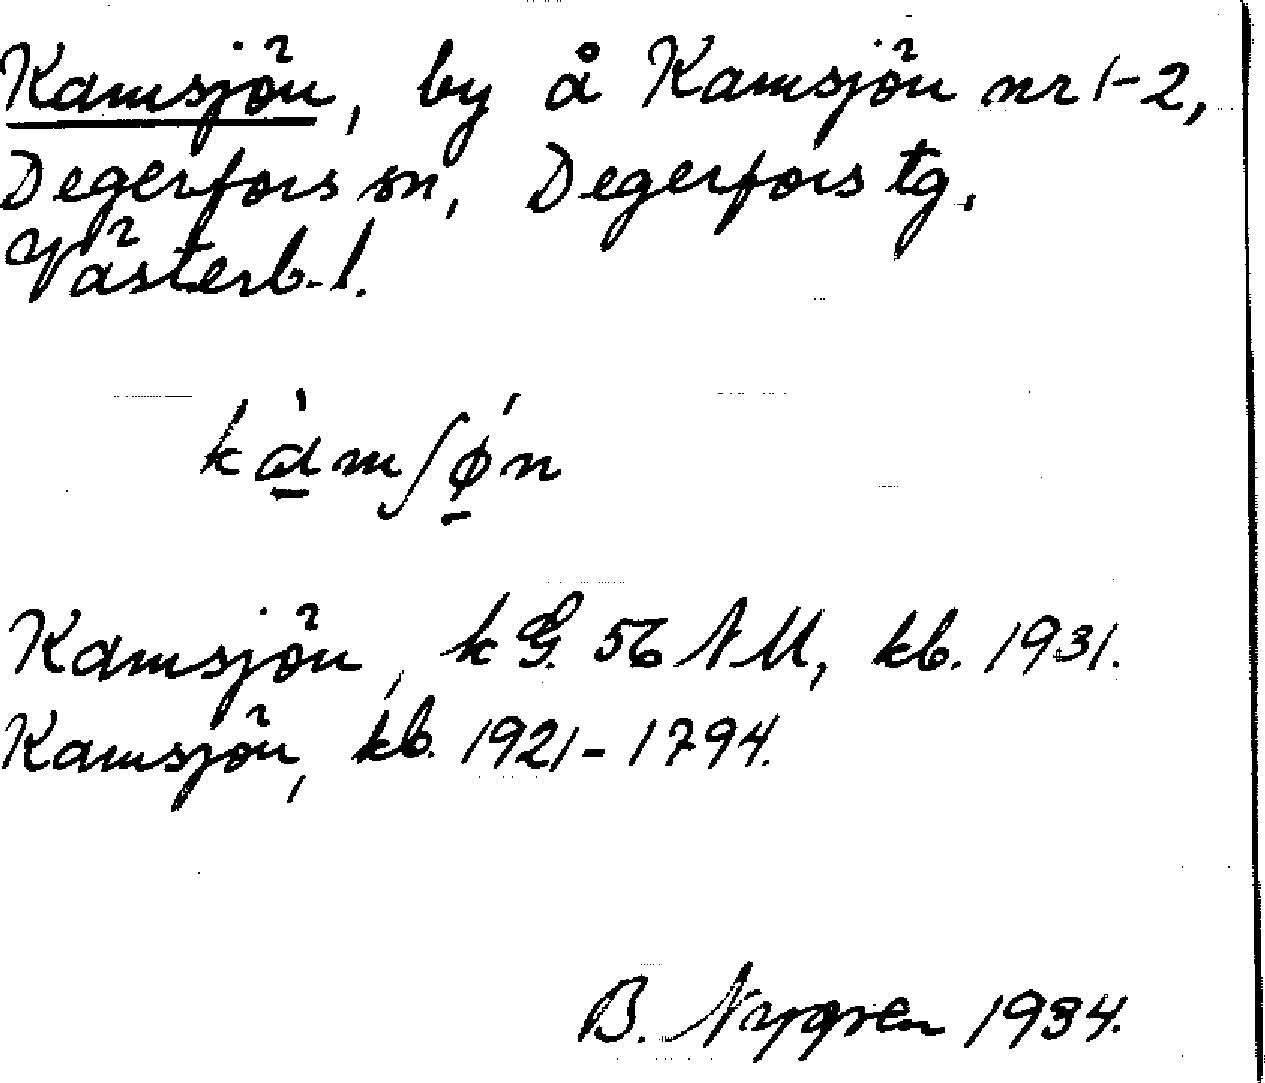 Kamsjön, by å Kamsjön nr 1-2,
Degerfors sn, Degerfors tg.
Västerb. l.
kàmʃǿn
Kamsjön, kG. 56 NM, kb. 1931.
Kamsjön, kb. 1921-1794.
B. Nygren 1934.